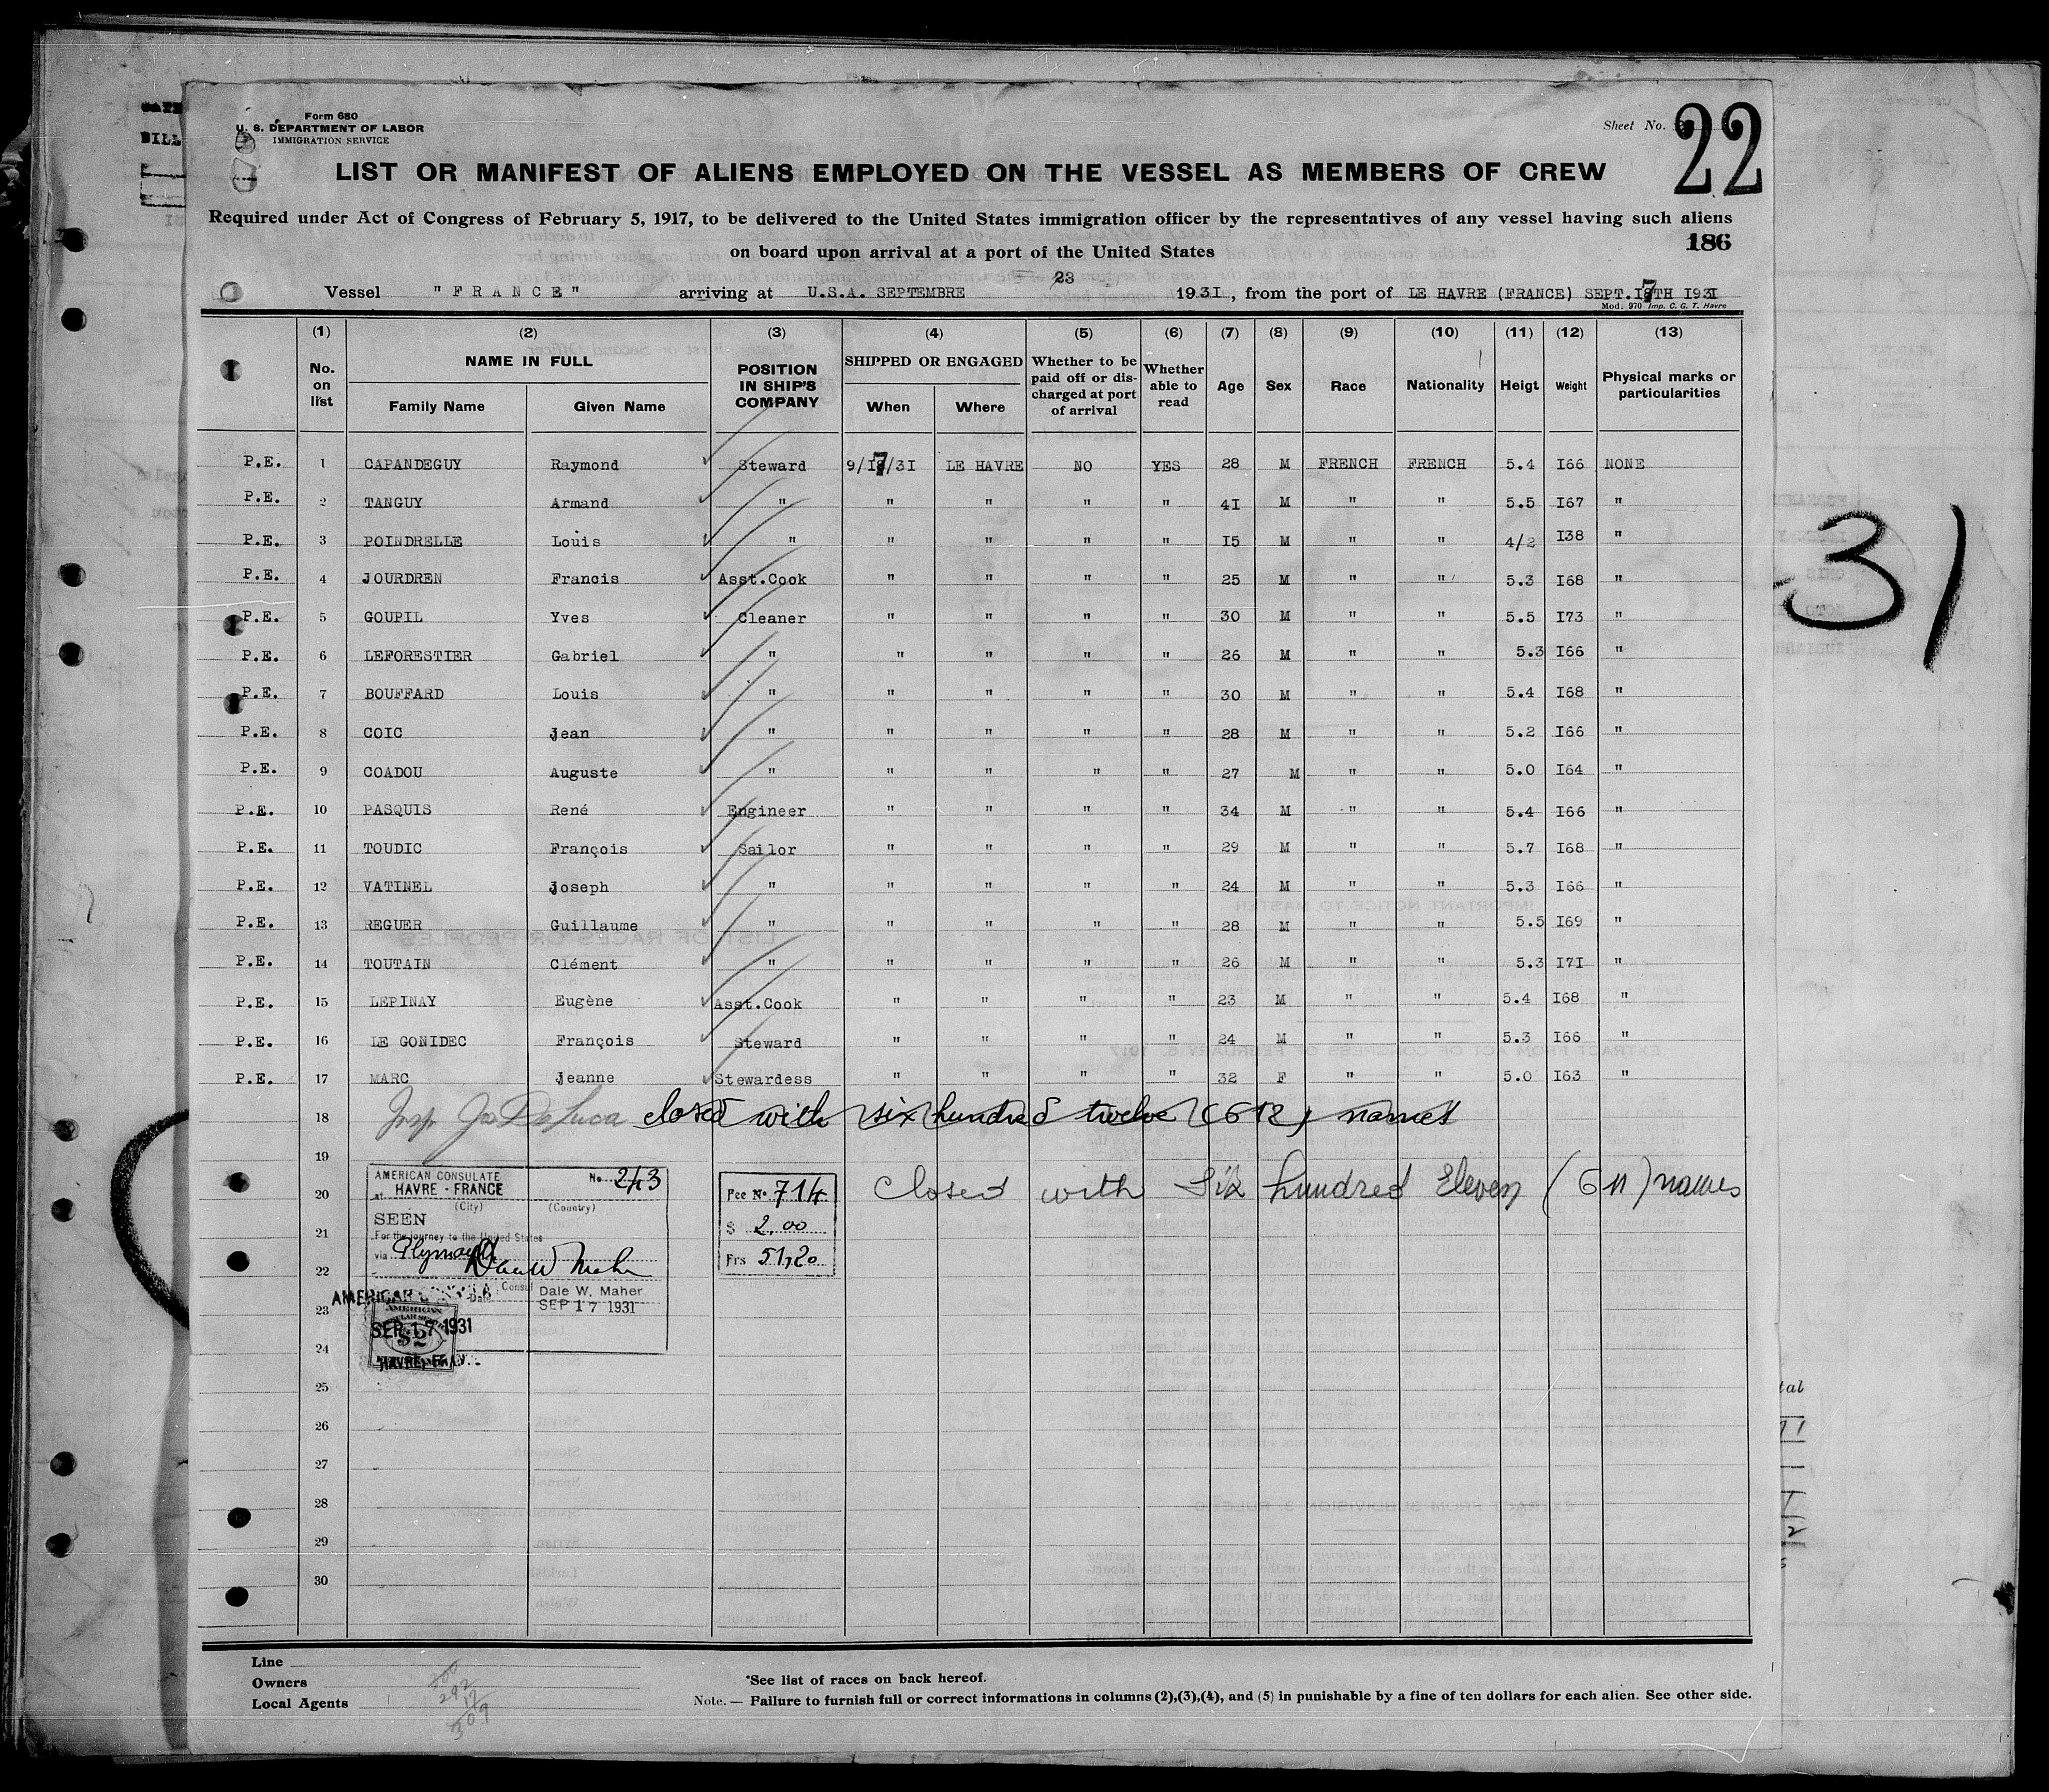 Form 680
U. S. DEPARTMENT OF LABOR
IMMIGRATION SERVICE
Sheet No. 22
LIST OR MANIFEST OF ALIENS EMPLOYED ON THE VESSEL AS MEMBERS OF CREW
Required under Act of Congress of February 5, 1917, to be delivered to the United States immigration officer by the representatives of any vessel having such aliens
on board upon arrival at a port of the United States
186
Vessel " F R A N C E " arriving at U.S.A. SEPTEMBRE 23 1931, from the port of LE HAVRE (FRANCE) SEPT.I7TH I931
Mod. 970 Imp. C. G. T. Havre
(1) (2) (3) (4) (5) (6) (7) (8) (9) (10) (11) (12) (13)
No. on list NAME IN FULL Family Name Given Name POSITION IN SHIP'S COMPANY SHIPPED OR ENGAGED When Where Whether to be paid off or discharged at port of arrival Whether able to read Age Sex Race Nationality Heigt Weight Physical marks or particularities
P.E. 1 CAPANDEGUY Raymond Steward 9/I7/3I LE HAVRE NO YES 28 M FRENCH FRENCH 5.4 I66 NONE
P.E. 2 TANGUY Armand " " " " " 4I M " " 5.5 I67 "
P.E. 3 POINDRELLE Louis " " " " " I5 M " " 4/2 I38 "
P.E. 4 JOURDREN Francis Asst.Cook " " " " 25 M " " 5.3 I68 "
P.E. 5 GOUPIL Yves Cleaner " " " " 30 M " " 5.5 I73 "
P.E. 6 LEFORESTIER Gabriel " " " " " 26 M " " 5.3 I66 "
P.E. 7 BOUFFARD Louis " " " " " 30 M " " 5.4 I68 "
P.E. 8 COIC Jean " " " " " 28 M " " 5.2 I66 "
P.E. 9 COADOU Auguste " " " " " 27 M " " 5.0 I64 "
P.E. 10 PASQUIS René Engineer " " " " 34 M " " 5.4 I66 "
P.E. 11 TOUDIC François Sailor " " " " 29 M " " 5.7 I68 "
P.E. 12 VATINEL Joseph " " " " " 24 M " " 5.3 I66 "
P.E. 13 REGUER Guillaume " " " " " 28 M " " 5.5 I69 "
P.E. 14 TOUTAIN Clément " " " " " 26 M " " 5.3 I7I "
P.E. 15 LEPINAY Eugène Asst.Cook " " " " 23 M " " 5.4 I68 "
P.E. 16 LE GONIDEC François Steward " " " " 24 M " " 5.3 I66 "
P.E. 17 MARC Jeanne Stewardess " " " " 32 F " " 5.0 I63 "
18 Insp. Jas DeLuca closed with six hundred twelve (612) names
19
20 closed with Six hundred Eleven (611) names
21
22
23
24
25
26
27
28
29
30
AMERICAN CONSULATE No. 243
at HAVRE - FRANCE
(City) (Country)
SEEN
For the journey to the United States
via Plymouth
Dale W Maher
Consul Dale W. Maher
Date SEP 17 1931
AMERICAN
SEP. 17 1931
HAVRE, FRANCE
Fee No 714
$ 2,00
Frs 51,20
31
Line
Owners
Local Agents
300
292
17
309
*See list of races on back hereof.
Note. — Failure to furnish full or correct informations in columns (2),(3),(4), and (5) in punishable by a fine of ten dollars for each alien. See other side.